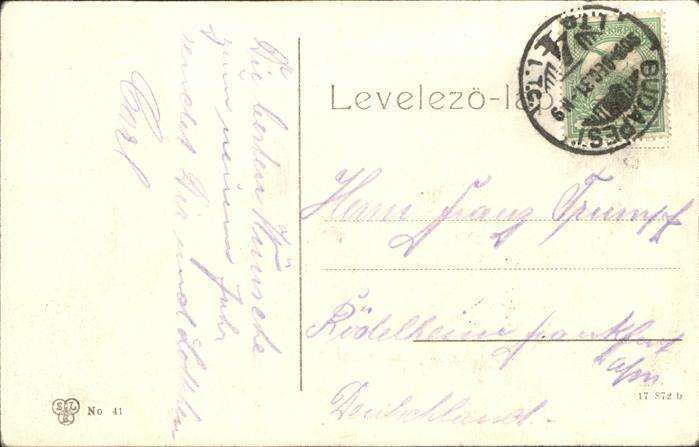 Die besten Wünsche
zum neuen Jahr
sendet Dir und Lottchen
Emil
Levelező-lap
BUDAPEST
Herrn Franz Trumpf
Rödelheim Frankfurt
a/m
Deutschland
SLBB
No 41
17 872 b